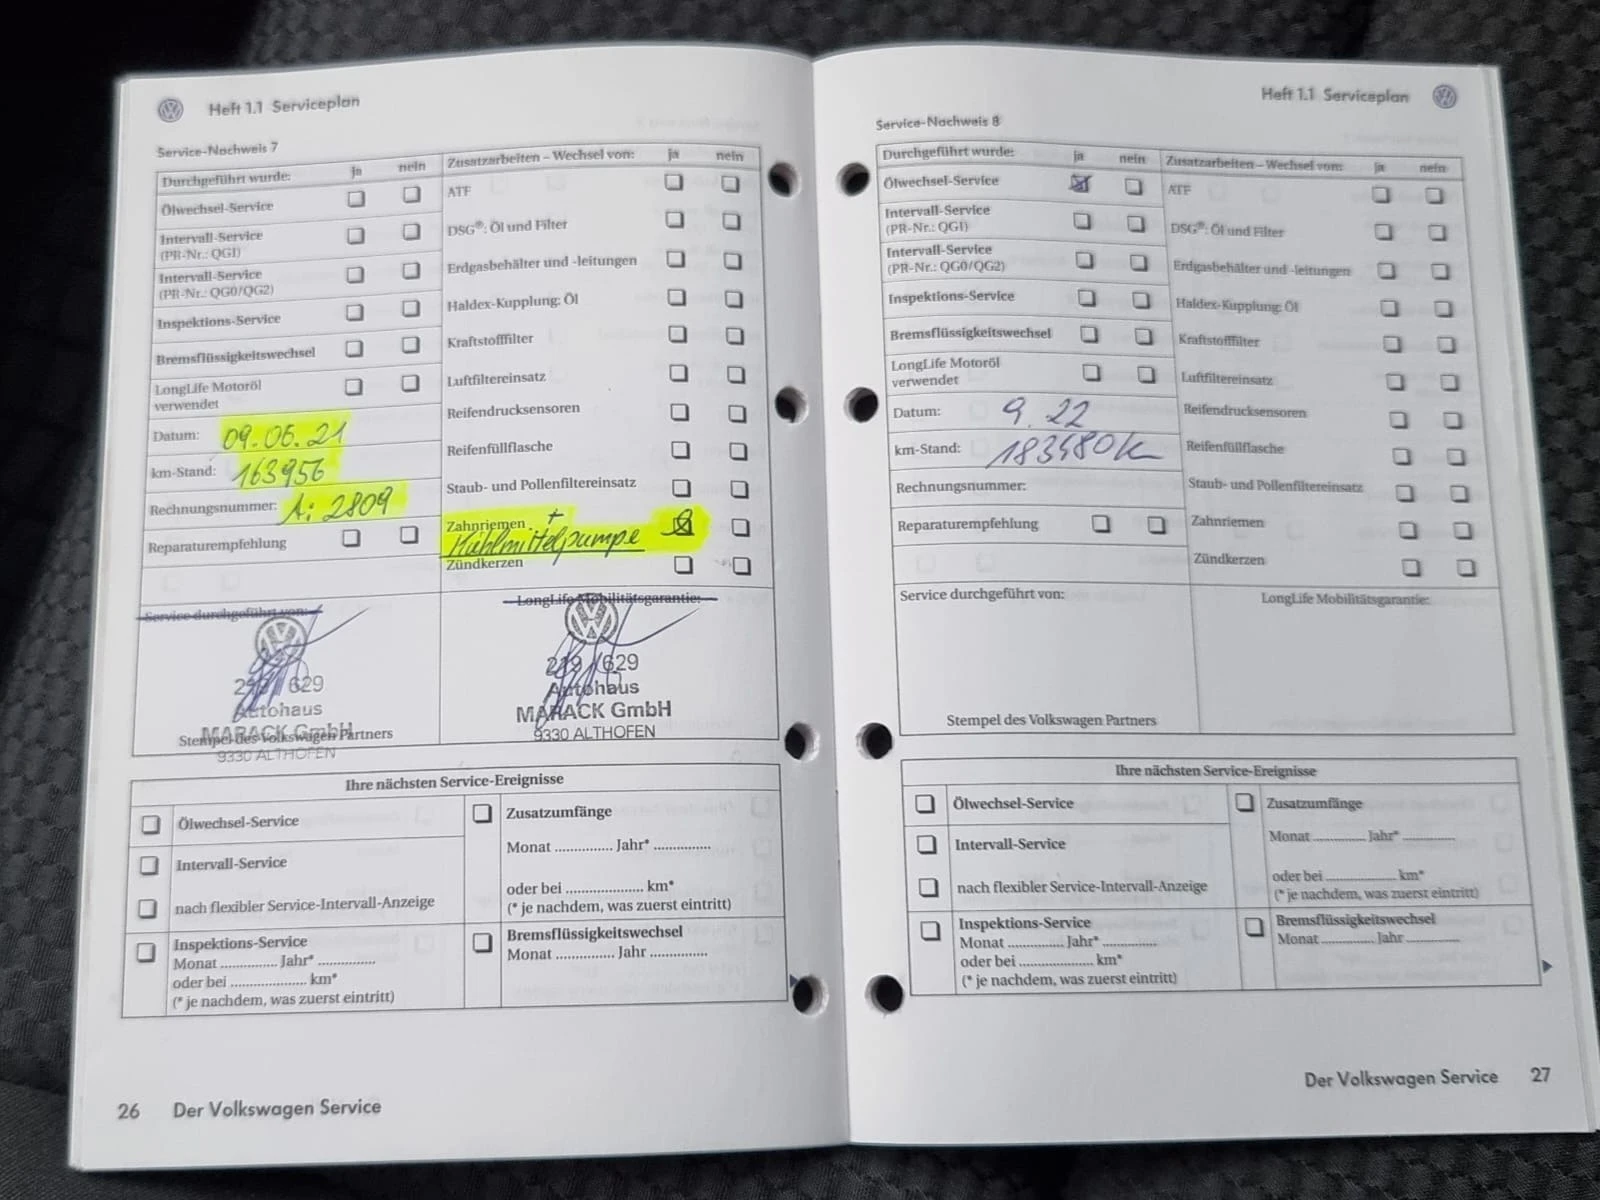 Heft 1.1 Serviceplan
Service-Nachweis 7
Durchgeführt wurde: ja nein
Ölwechsel-Service
Intervall-Service
(PR-Nr.: QG1)
Intervall-Service
(PR-Nr.: QG0/QG2)
Inspektions-Service
Bremsflüssigkeitswechsel
LongLife Motoröl
verwendet
Datum: 09.06.21
km-Stand: 163956
Rechnungsnummer: A: 2809
Reparaturempfehlung
Zusatzarbeiten – Wechsel von: ja nein
ATF
DSG®: Öl und Filter
Erdgasbehälter und -leitungen
Haldex-Kupplung: Öl
Kraftstofffilter
Luftfiltereinsatz
Reifendrucksensoren
Reifenfüllflasche
Staub- und Pollenfiltereinsatz
Zahnriemen +
Kühlmittelpumpe
Zündkerzen
Service durchgeführt von:
629
Autohaus
MARACK GmbH
Stempel des Volkswagen Partners
9330 ALTHOFEN
LongLife Mobilitätsgarantie:
219 / 629
Autohaus
MARACK GmbH
9330 ALTHOFEN
Ihre nächsten Service-Ereignisse
Ölwechsel-Service
Intervall-Service
nach flexibler Service-Intervall-Anzeige
Inspektions-Service
Monat .............. Jahr* ..............
oder bei ................... km*
(* je nachdem, was zuerst eintritt)
Zusatzumfänge
Monat .............. Jahr* ..............
oder bei ................... km*
(* je nachdem, was zuerst eintritt)
Bremsflüssigkeitswechsel
Monat .............. Jahr ..............
26 Der Volkswagen Service
Heft 1.1 Serviceplan
Service-Nachweis 8
Durchgeführt wurde: ja nein
Ölwechsel-Service
Intervall-Service
(PR-Nr.: QG1)
Intervall-Service
(PR-Nr.: QG0/QG2)
Inspektions-Service
Bremsflüssigkeitswechsel
LongLife Motoröl
verwendet
Datum: 9.22
km-Stand: 183480k
Rechnungsnummer:
Reparaturempfehlung
Zusatzarbeiten – Wechsel von: ja nein
ATF
DSG®: Öl und Filter
Erdgasbehälter und -leitungen
Haldex-Kupplung: Öl
Kraftstofffilter
Luftfiltereinsatz
Reifendrucksensoren
Reifenfüllflasche
Staub- und Pollenfiltereinsatz
Zahnriemen
Zündkerzen
Service durchgeführt von:
Stempel des Volkswagen Partners
LongLife Mobilitätsgarantie:
Ihre nächsten Service-Ereignisse
Ölwechsel-Service
Intervall-Service
nach flexibler Service-Intervall-Anzeige
Inspektions-Service
Monat .............. Jahr* ..............
oder bei ................... km*
(* je nachdem, was zuerst eintritt)
Zusatzumfänge
Monat .............. Jahr* ..............
oder bei ................... km*
(* je nachdem, was zuerst eintritt)
Bremsflüssigkeitswechsel
Monat .............. Jahr ..............
Der Volkswagen Service 27